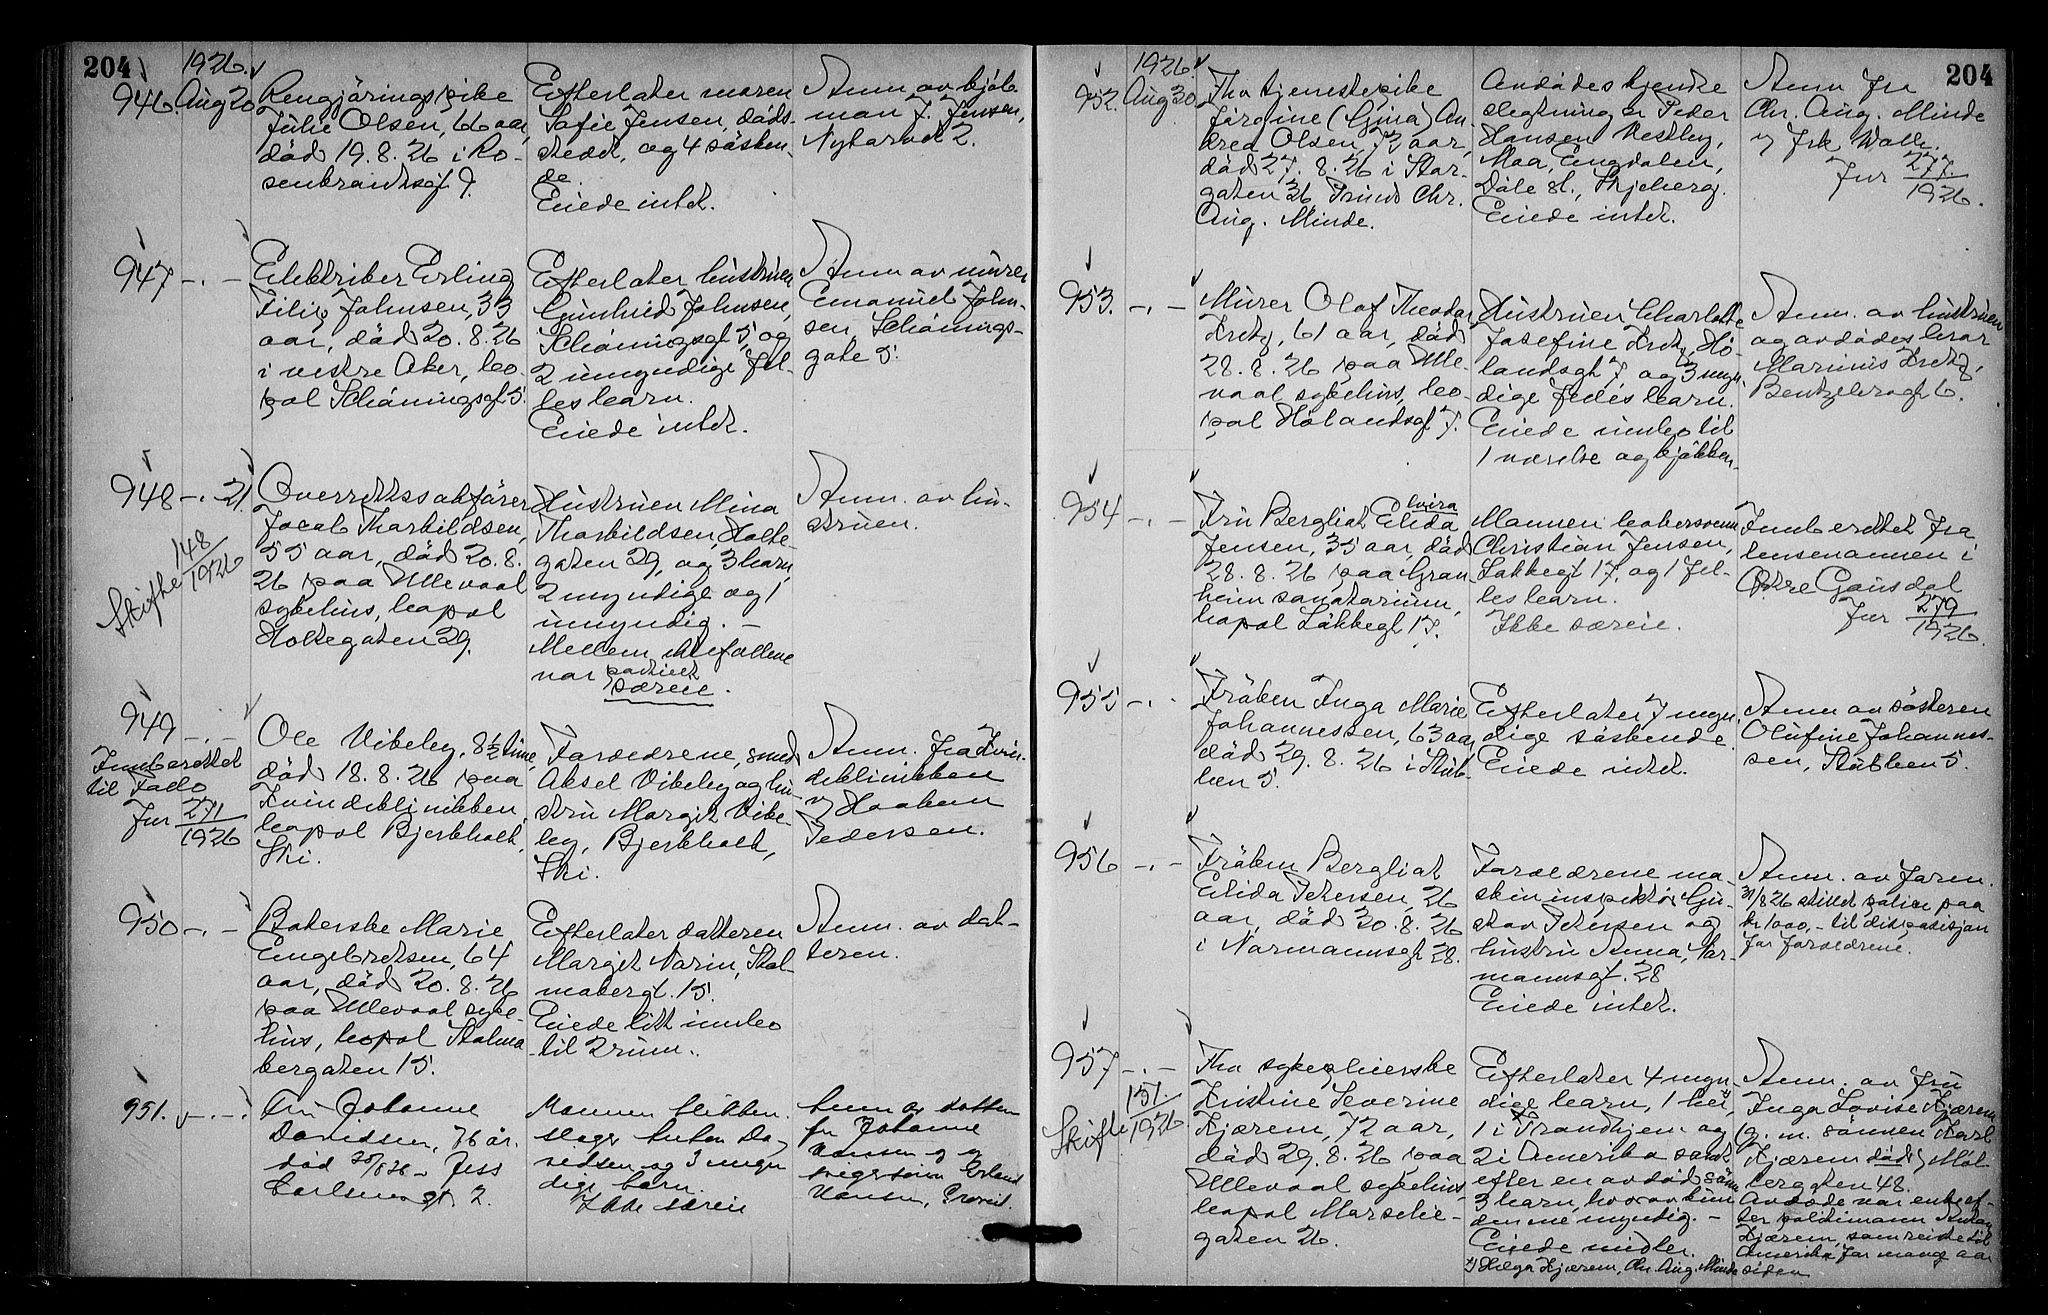 204
1926.
946. Aug 20
Rengjøringspike
Julie Olsen, 66 aar,
død 19.8.26 i Ro-
senkrantzgt 9.
Efterlater moren
Sofie Jensen, døds-
stedet, og 4 søsken-
de.
Eiede intet.
Anm. av kjøb-
man J. Jensen,
Nytorvet 2.
947 -.-
Elektriker Erling
Filip Johnsen, 33
aar, død 20.8.26
i vestre Aker, bo-
pal Schøningsgt 5.
Efterlater hustruen
Gunhild Johnsen,
Schøningsgt 5, og
2 umyndige fel-
les barn.
Eiede intet.
Anm av murer
Emanuel John-
sen, Schønings-
gate 5.
948 -. 21.
Skifte 148/1926
Overrettssakfører
Jacob Thorkildsen,
55 aar, død 20.8.
26 paa Ullevaal
sykehus, bopal
Holtegaten 29.
Hustruen Mina
Thorkildsen, Holte-
gaten 29, og 3 barn,
2 myndige og 1
umyndig. -
Mellem ektefollene
var partielt
særeie.
Anm. av hu-
struen.
949 -.-
Innberettet
til Follo
Jnr 271/1926
Ole Vibeby, 8½ time,
død 18.8.26 paa
Kvindeklinikken,
bopal Bjerkholt,
Ski.
Forældrene, smed
Aksel Vibeby og hu-
stru Margit Vibe-
by, Bjerkholt,
Ski.
Anm. fra Kvin-
deklinikken
v Haakon
Pedersen.
950 -.-
Baterske Marie
Engebretsen, 64
aar, død 20.8.26
paa Ullevaal syke-
hus, bopal Stolma
bergaten 15.
Efterlater datteren
Margit Norin, Stol-
mabergt. 15.
Eiede litt innbo
til 2 rum.
Anm. av dat-
teren.
951. -.-
Fru Johanne
Davidsen, 76 år.
død 20/8 26 - Jess
Carlsens gt. 2.
Mannen blikken-
slager Anton Da-
vidsen og 3 myn
dige barn.
Ikke særeie
Anm av datten
fru Johanne
Hansen og
svigersønn Erland
Hansen, Grorud.
204
1926.
952. Aug 30
Fhv tjenestepike
Jørgine (Gina) An-
drea Olsen, 72 aar,
død 27.8.26 i Stor-
gaten 36, Prinds Chr.
Aug. Minde.
Avdødes kjendte
slegtning er Peder
Hansen Vestby,
Moa, Engdalen,
Dale st., Skjeberg.
Eiede intet.
Anm fra
Chr. Aug. Minde
v frk Wolle.
Jnr 277./1926.
953. -.-
Murer Olof Theodor
Kretz, 61 aar, død
28.8.26 paa Ulle-
vaal sykehus, bo-
pal Hølandsgt 7.
Hustruen Charlotte
Josefine Kretz, Hø-
landsgt 7 og 3 myn-
dige felles barn.
Eiede innbo til
1 værelse og kjøkken.
Anm. av hustruen
og avdødes bror
Marinus Kretz,
Bentzebrogt 6.
954 -.-
Fru Bergliot Elvira Elida
Jensen, 35 aar, død
28.8.26 paa Gran
heim sanatorium,
bopal Løkkegt 17.
Mannen kobersvenn
Christian Jensen,
Løkkegt 17, og 1 fel-
les barn.
Ikke særeie.
Innberettet fra
lensmannen i
Østre Gausdal
Jnr 279/1926.
955 -.-
Frøken Inga Marie
Johannessen, 63 aar,
død 29.8.26 i Stub-
ben 5.
Efterlater 7 myn-
dige søskende.
Eiede intet.
Anm av søsteren
Olufine Johannes-
sen, Stubben 5.
956 -.-
Frøken Bergliot
Elida Petersen, 26
aar, død 30.8.26
i Normannsgt 28.
Forældrene ma-
skininspektør Gu-
stav Petersen og
hustru Anna, Nor-
mannsgt. 28
Eiede intet.
Anm. av faren.
31/8 26 stillet police paa
kr 1000,- til disposisjon
for forældrene.
957 -.-
Skifte 151/1926
Fhv sykepleierske
Kristine Severine
Kjærem, 72 aar,
død 29.8.26 paa
Ullevaal sykehus,
bopal Marselie-
gaten 26.
Efterlater 4 myn-
dige barn, 1 her,
1 i Trondhjem og
2 i Amerika samt
efter en avdød sønn
3 barn, hvorav kun
den ene myndig. -
Eiede midler.
x) Helga Kjærem, Chr. Aug. Minde
Anm. av fru
Inga Lovise Kjærem
g. m. sønnen Karl
Kjærem død, Møl-
lergaten 48.
Avdøde var enke ef-
ter politimann Anton
Kjærem, som reiste til
Amerika for mange aar
siden